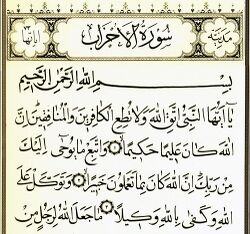 مدنية سُورَةُ الأَحْزَابِ آياتها
بِسْمِ اللهِ الرَّحْمٰنِ الرَّحِيمِ
يَا أَيُّهَا النَّبِيُّ اتَّقِ اللهَ وَلَا تُطِعِ الْكَافِرِينَ وَالْمُنَافِقِينَ إِنَّ
اللهَ كَانَ عَلِيمًا حَكِيمًا وَاتَّبِعْ مَا يُوحَى إِلَيْكَ
مِنْ رَبِّكَ إِنَّ اللهَ كَانَ بِمَا تَعْمَلُونَ خَبِيرًا وَتَوَكَّلْ عَلَى
اللهِ وَكَفَى بِاللهِ وَكِيلًا مَا جَعَلَ اللهُ لِرَجُلٍ مِنْ